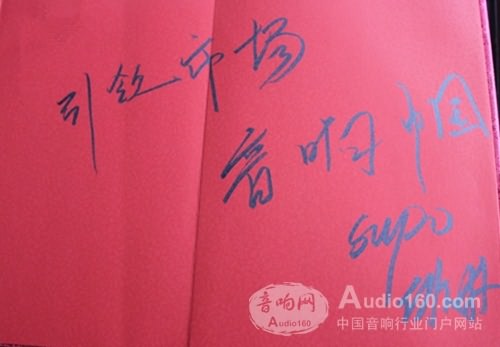 引领市场
音响中国
音响网
Audio160
Audio160.com
中国音响行业门户网站